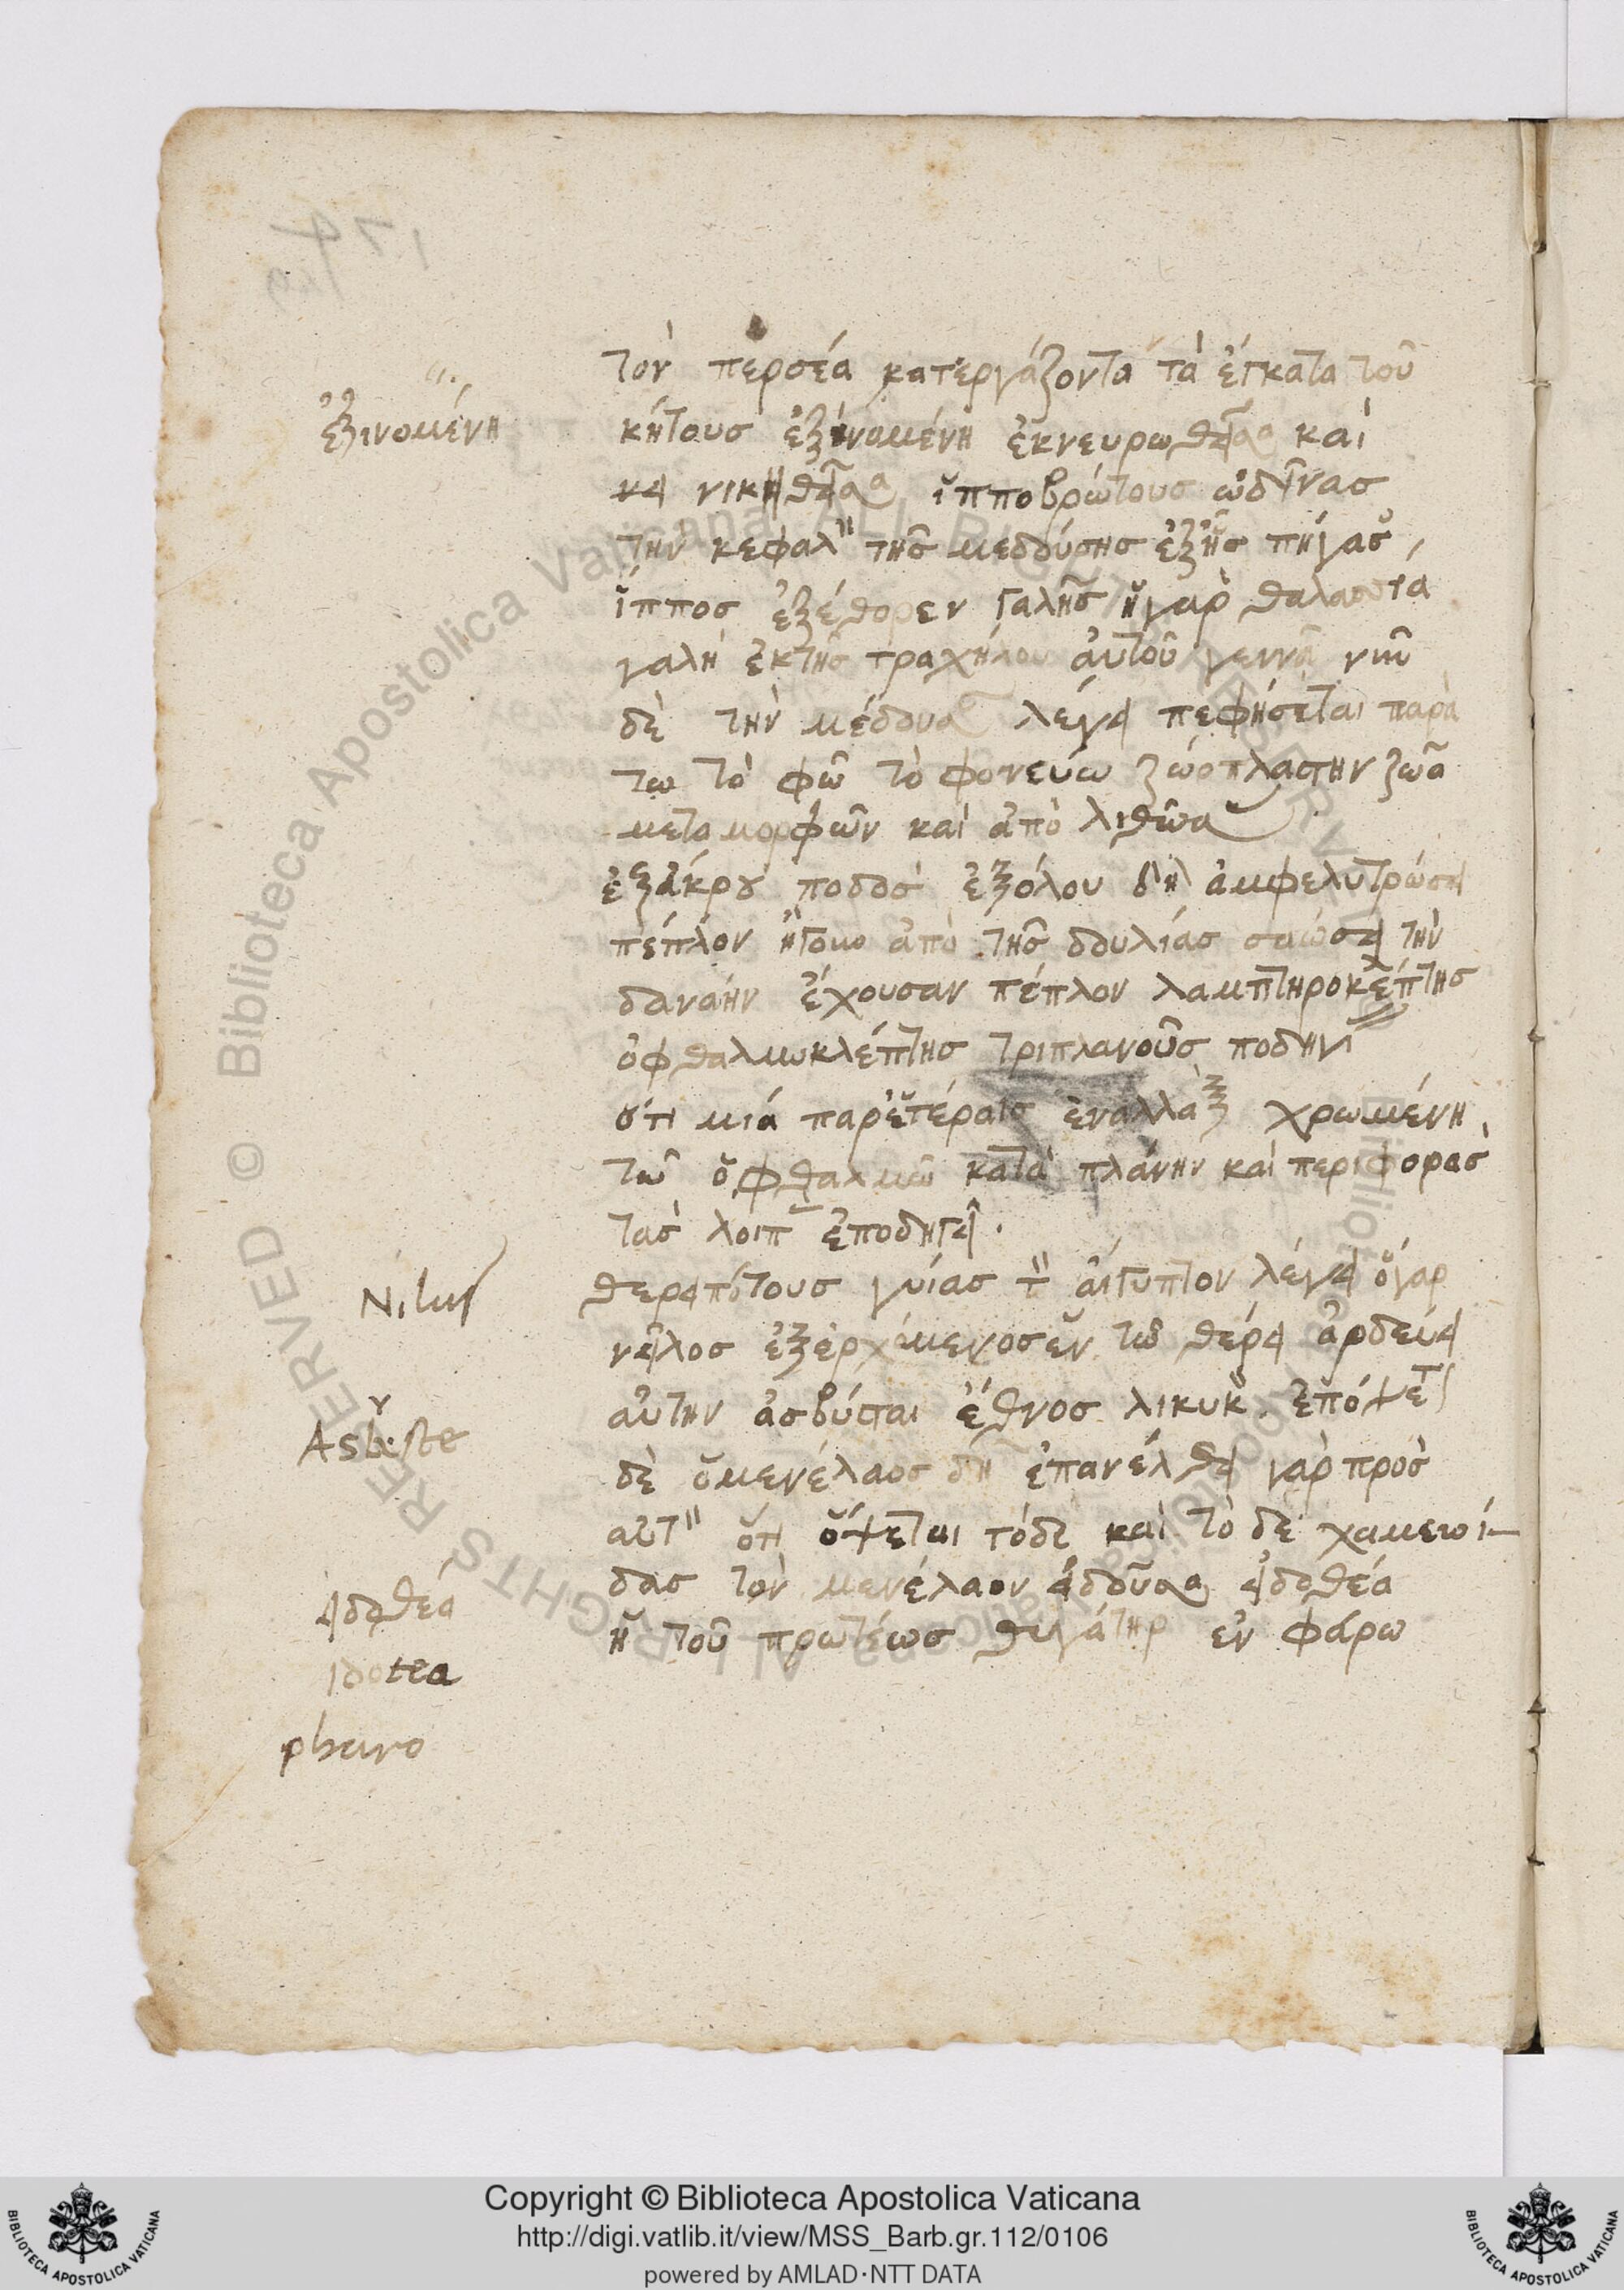 τὸν περσέα κατεργάζοντα τὰ ἔγκατα τοῦ
ἐξινομένη
κήτους ἐξινομένη ἐκνευρωθεῖσα καὶ
κε νικηθεῖσα ἱπποβρώτους ὠδῖνας
τὴν κεφαλ τῆς μεδούσης ἐξῆς πήγασ
ἵππος ἐξέθορεν γαλῆς ἡ γὰρ θαλασσία
γαλῆ ἐκ τῆς τραχήλου αὐτοῦ γεννᾶ νῦν
δὲ τὴν μέδουσα λέγει πεφήσεται παρὰ
τω τὸ φῶ τὸ φονεύω ζώοπλάστην ζῶα
μεταμορφῶν καὶ ἀπὸ λιθῶα
ἐξάκρου ποδὸς ἐξόλου δὴ ἀμφελυτρώσει
πέπλον ἤτοι ἀπὸ τῆς δουλίας σαώσει τὴν
δανάην ἔχουσαν πέπλον λαμπτηροκλέπτης
ὀφθαλμοκλέπτης τριπλανοῦς ποδην
ὅτι μιά παρἑτέραις ἐναλλὰξ χρωμένη
τῶ ὀφθαλμῶ κατὰ πλάνην καὶ περιφορὰς
τὰς λοιπ ἐποδηγεῖ.
Nilus
θερειπότους γυίας τ αἴγυπτον λέγει ὁ γαρ
νεῖλος ἐξερχόμενος ἐν τῶ θέρει ἀρδεύει
αὐτην ἀσβύσται ἔθνος λικυκ. ἐπόψετ
Asbyste
δὲ ὁ μενέλαος δη ἐπανέλθει γὰρ πρὸς
αὐτ ὅτι ὄψεται τόδε καὶ τὸ δε χαμευνά-
δας τὸν μενέλαον εἰδοῦσα εἰδοθέα
εἰδοθέα
ἡ τοῦ πρωτέως θυγάτηρ ἐν φάρω
Idotea
pharo
Copyright © Biblioteca Apostolica Vaticana
http://digi.vatlib.it/view/MSS_Barb.gr.112/0106
powered by AMLAD·NTT DATA
BIBLIOTECA APOSTOLICA VATICANA
BIBLIOTECA APOSTOLICA VATICANA